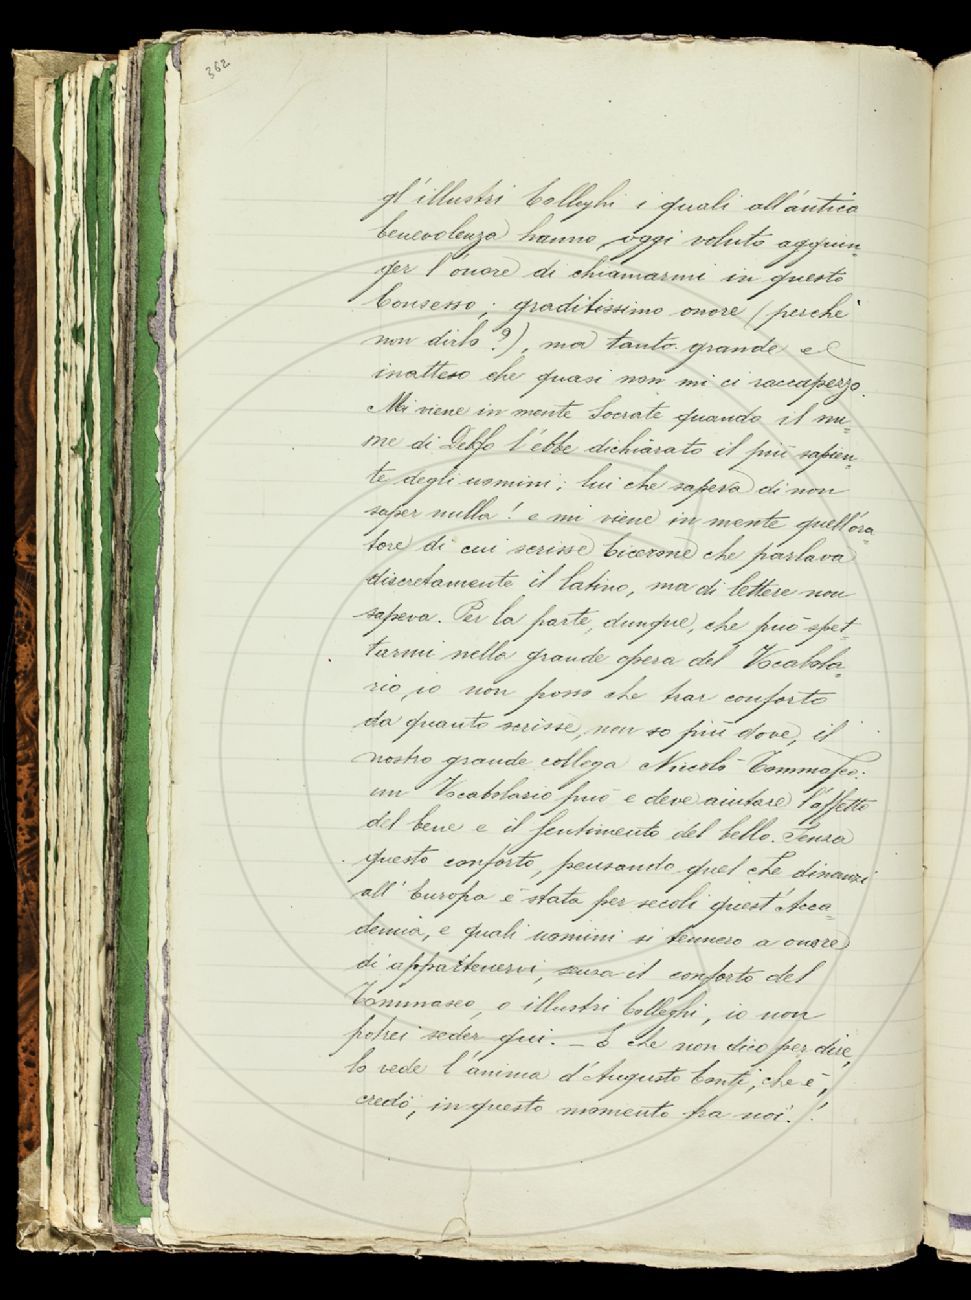 362
gl'illustri Colleghi i quali all'antica
benevolenza hanno oggi voluto aggiun=
ger l'onore di chiamarmi in questo
Consesso; graditissimo onore (perché
non dirlo?), ma tanto grande e
inatteso che quasi non mi ci raccapezzo.
Mi viene in mente Socrate quando il nu=
me di Delfo l'ebbe dichiarato il più sapien=
te degli uomini; lui che sapeva di non
saper nulla! e mi viene in mente quell'ora=
tore di cui scrisse Cicerone che parlava
discretamente il latino, ma di lettere non
sapeva. Per la parte, dunque, che può spet=
tarmi nella grande opera del Vocabola=
rio, io non posso che trar conforto
da quanto scrisse, non so più dove, il
nostro grande collega Niccolò Tommaseo:
un Vocabolario può e deve aiutare l'affetto
del bene e il sentimento del bello. Senza
questo conforto, pensando quel che dinanzi
all'Europa è stata per secoli quest'Acca=
demia, e quali uomini si tennero a onore
di appartenervi, senza il conforto del
Tommaseo, o illustri Colleghi, io non
potrei seder qui. — E che non dico per dire,
lo vede l'anima d'Augusto Conti, che è,
credo, in questo momento tra noi!